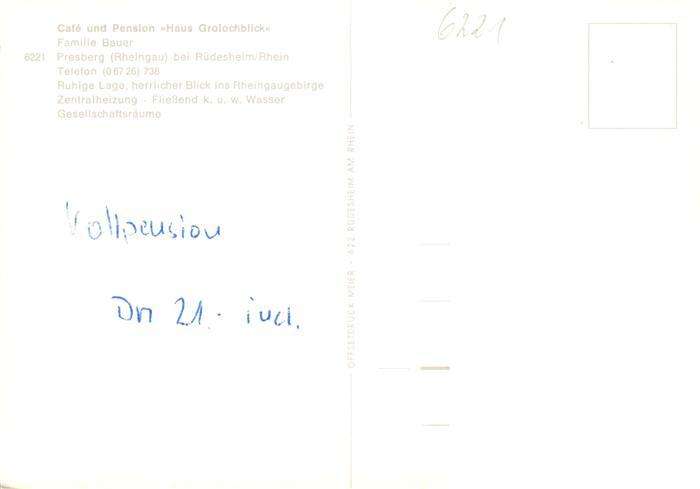 Café und Pension »Haus Grolochblick«
Familie Bauer
6221 Presberg (Rheingau) bei Rüdesheim/Rhein
Telefon (0 67 26) 738
Ruhige Lage, herrlicher Blick ins Rheingaugebirge
Zentralheizung - Fließend k. u. w. Wasser
Gesellschaftsräume
Vollpension
Dm 21.- incl.
OFFSETDRUCK MEIER - 622 RÜDESHEIM AM RHEIN
6221